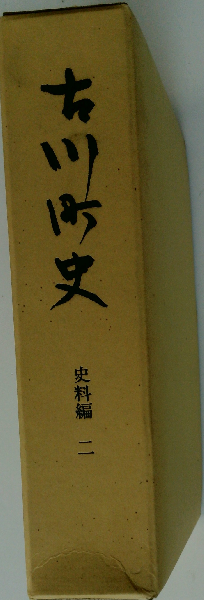 古川町史
史料編 二